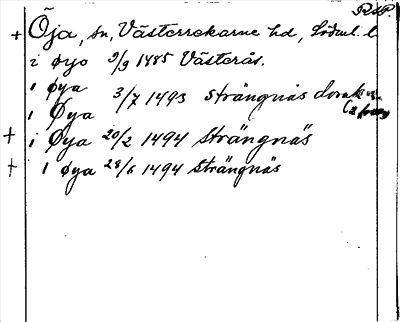 RAP.
+ Öja, sn, Västerrekarne hd, Söderml. l
i øyo 9/9 1485 Västerås.
i øya 3/7 1493 Strängnäs domk.
i Øya
+ i Øya 20/2 1494 Strängnäs
+ i øya 28/6 1494 Strängnäs